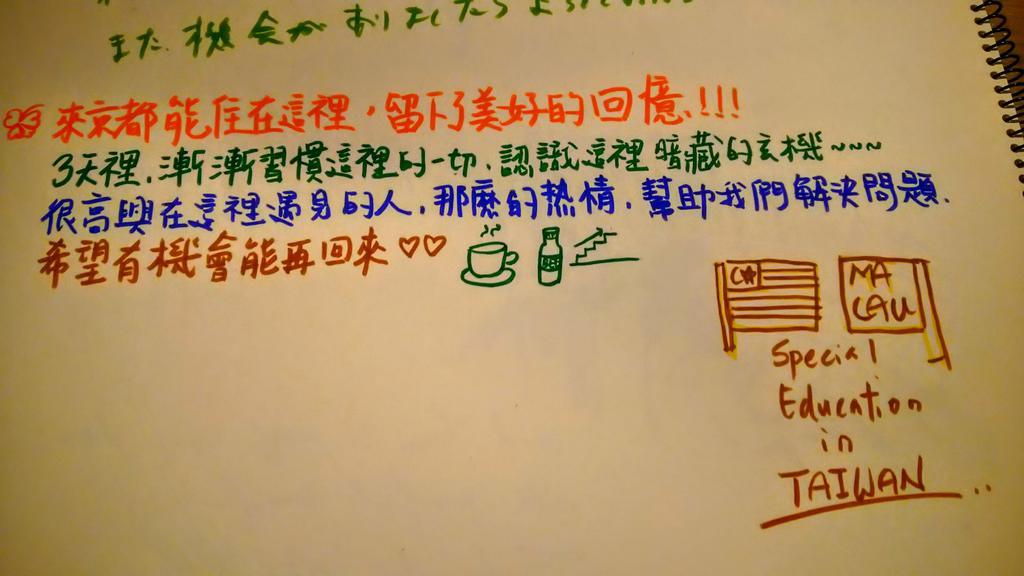 また機会がありましたらよろ
來京都能住在這裡，留下了美好的回憶!!!
3天裡，漸漸習慣這裡的一切，認識這裡暗藏的玄機~~~
很高興在這裡遇見的人，那麼的热情，幫助我們解決問題.
希望有機會能再回來♡♡
MA
CAU
Special
Education
in
TAIWAN